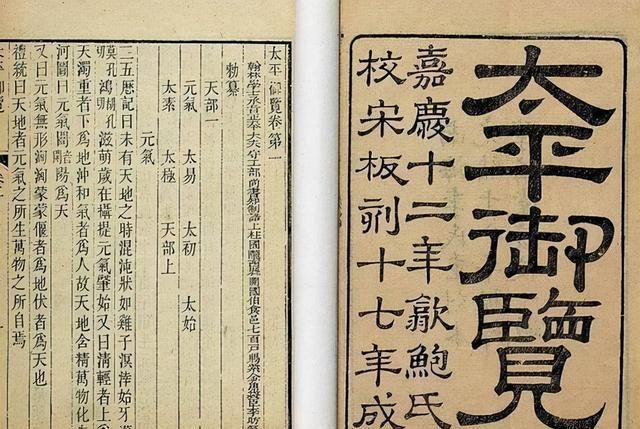 太平御覽
嘉慶十二年歙鮑氏
校宋板刋十七年成
太平御覽卷第一
翰林學士承旨正奉大夫守工部尚書知制誥上柱國隴西縣開國伯食邑七百戶賜紫金魚袋臣李昉
勅纂
天部一
元氣 太易 太初 太始
太素 太極 天部上
元氣
三五歷記曰未有天地之時混沌狀如雞子溟涬始牙
滋萌歲在攝提元氣肇始又曰清輕者上
天濁重者下爲地沖和氣者爲人故天地含精萬物化
河圖曰元氣闓陽爲天
又曰元氣無形洶洶蒙蒙偃者爲地伏者爲天也
禮統曰天地者元氣之所生萬物之所自焉